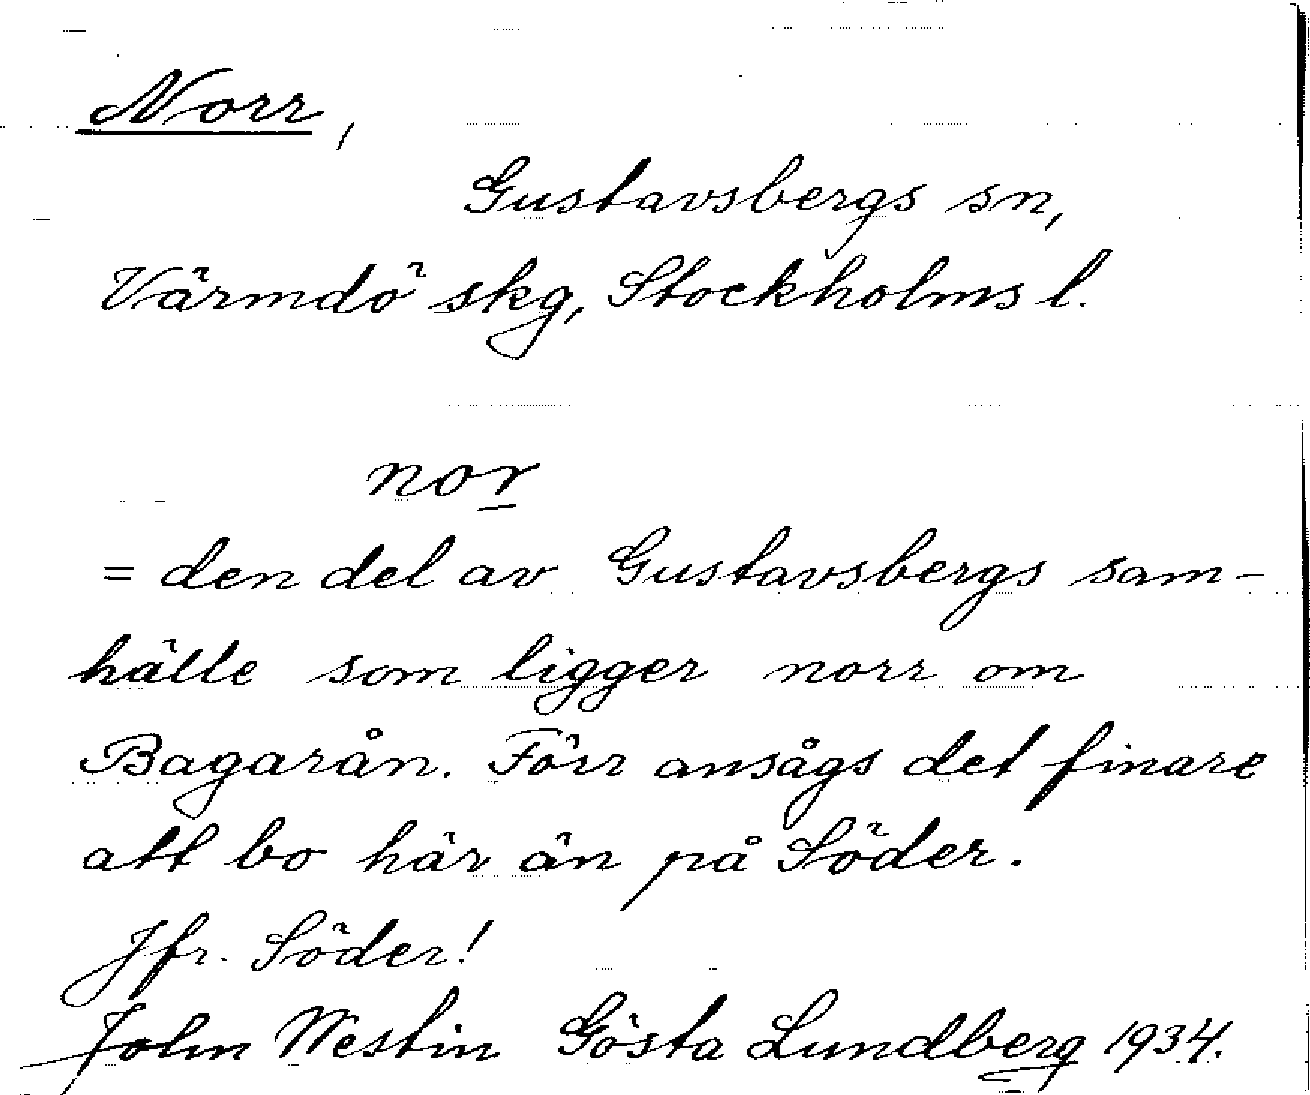 Norr,
Gustavsbergs sn,
Värmdö skg, Stockholms l.
nor
= den del av Gustavsbergs sam-
hälle som ligger norr om
Bagarån. Förr ansågs det finare
att bo här än på Söder.
Jfr. Söder!
John Westin Gösta Lundberg 1934.